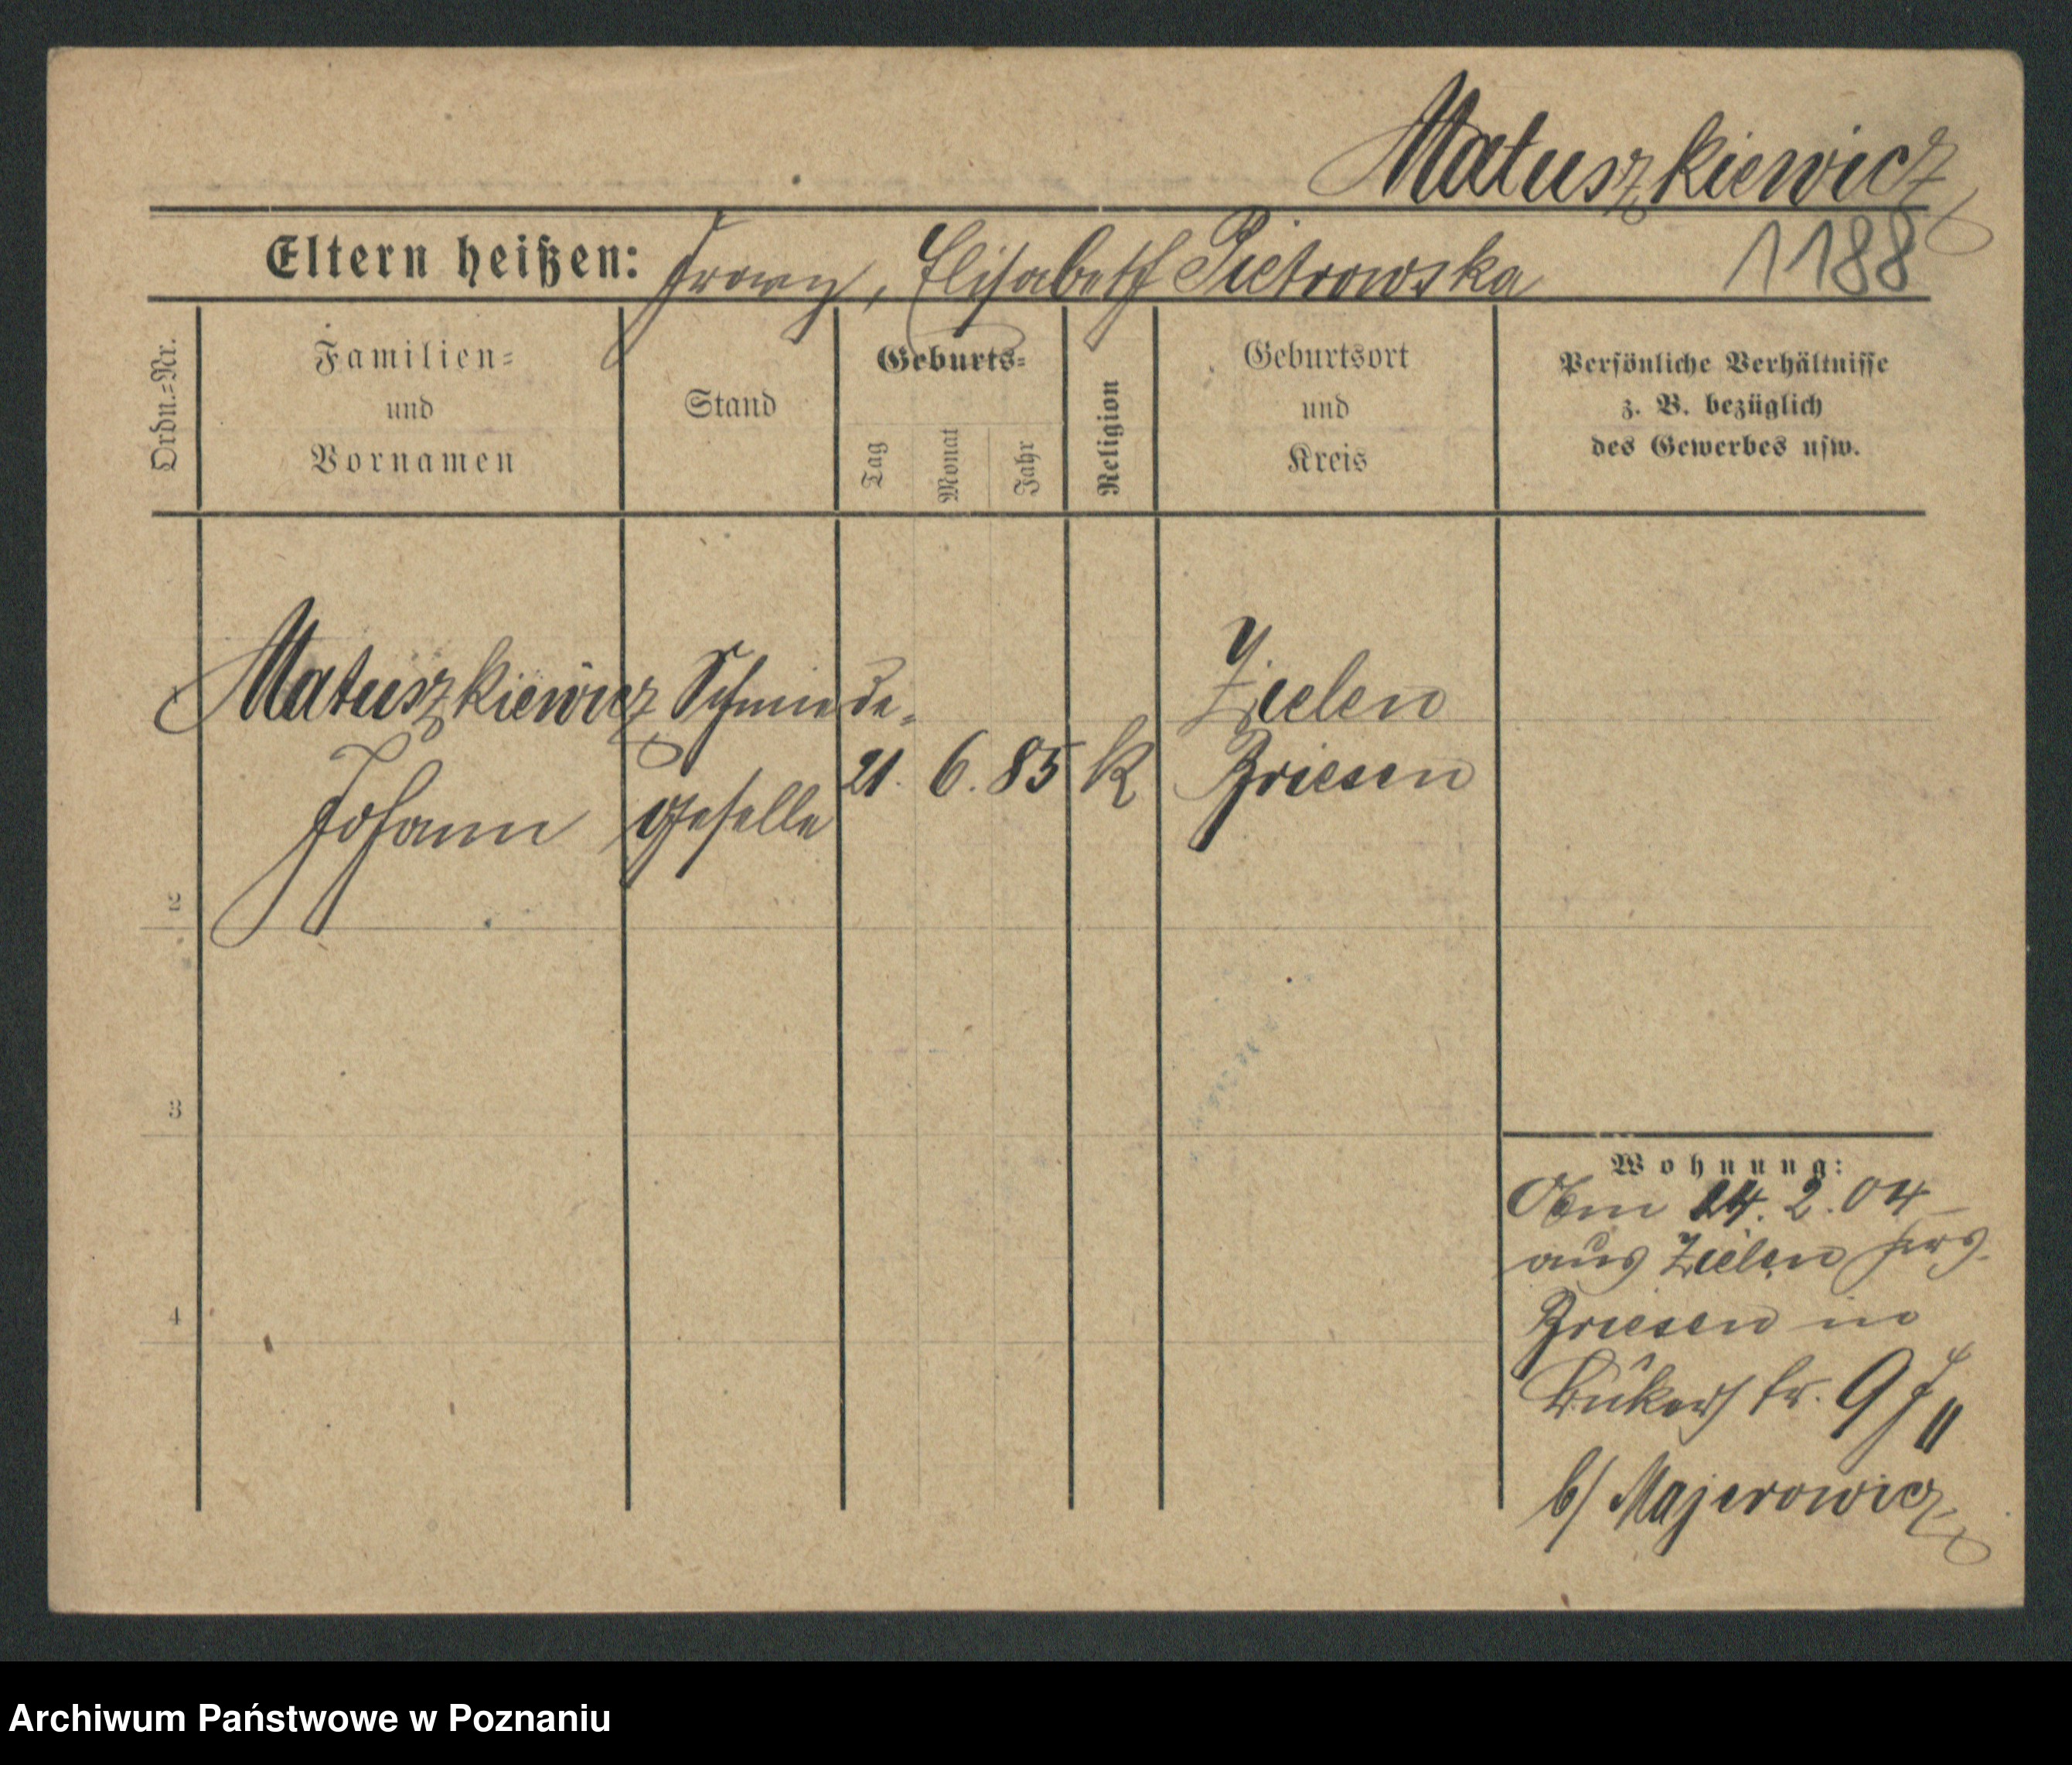 Matuszkiewicz
Eltern heißen: Franz, Elisabeth Pietrowska 1188
Ordn.=Nr.
Familien=
und
Vornamen
Stand
Geburts=
Tag
Monat
Jahr
Religion
Geburtsort
und
Kreis
Persönliche Verhältnisse
z. B. bezüglich
des Gewerbes usw.
1 Matuszkiewicz Schmiede- Zielen
Johann geselle 21. 6. 85 K Briesen
2
3
4
Wohnung:
24. 2. 04
aus Zielen
Briesen in
9
b/ Majerowicz
Archiwum Państwowe w Poznaniu